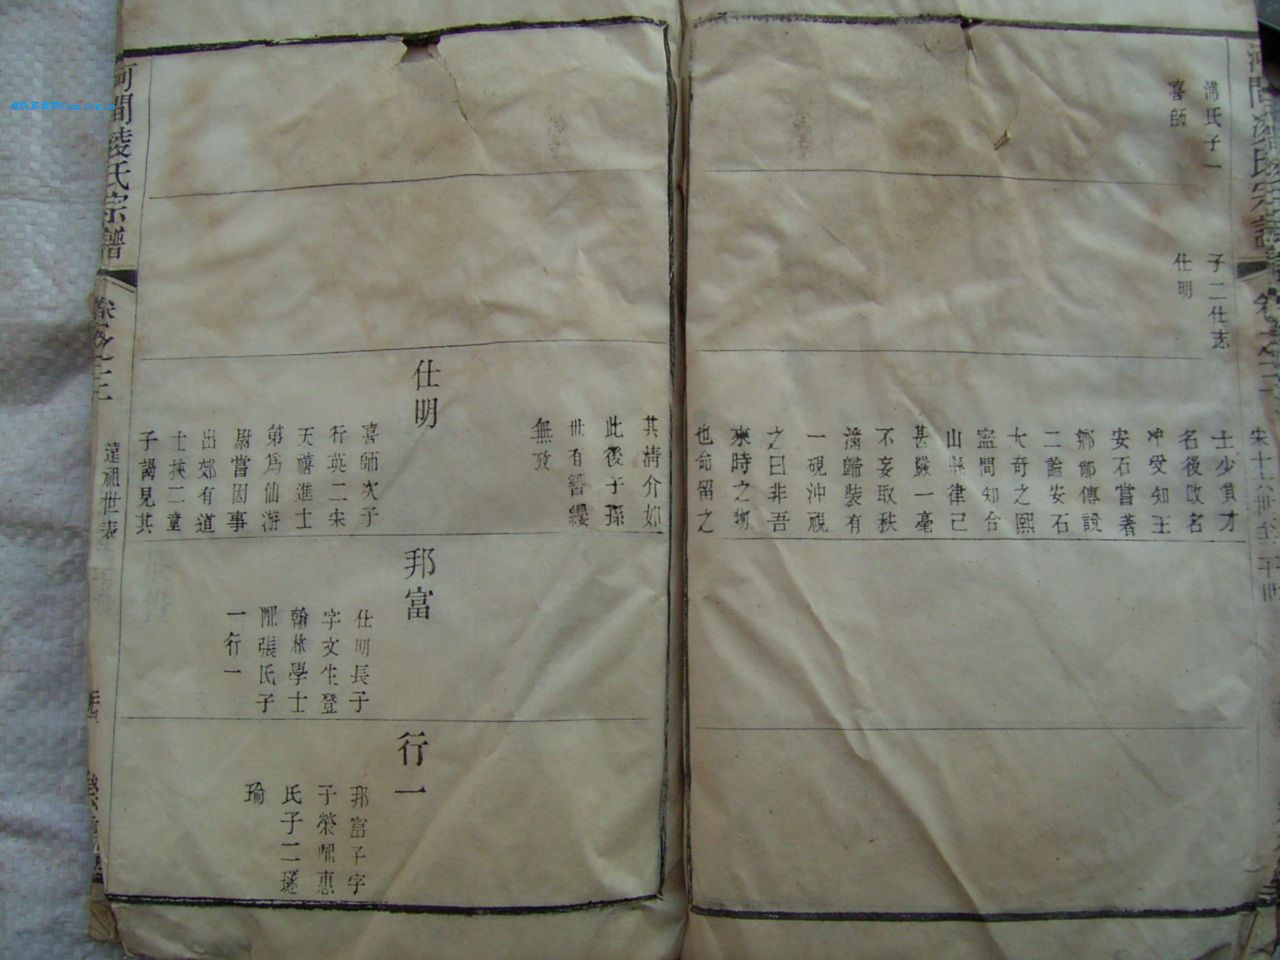 浦氏子一
喜師
子二仕志
仕明
士少負才
名後改名
冲受知王
安石嘗著
鄉郎傳說
二論安石
大奇之熙
寧間知合
山縣律己
甚嚴一毫
不妄取秩
滿歸裝有
一硯沖視
之曰非吾
來時之物
也命留之
其清介如
此後子孫
世有簪纓
無攷
仕明
喜師次子
行英二宋
天禧進士
第為仙游
尉嘗因事
出郊有道
士挾二童
子謁見其
邦富
仕明長子
字文生登
翰林學士
配張氏子
一行一
行一
邦富子字
子榮配惠
氏子二璲
瑜
河間凌氏宗譜
卷之二
遠祖世表